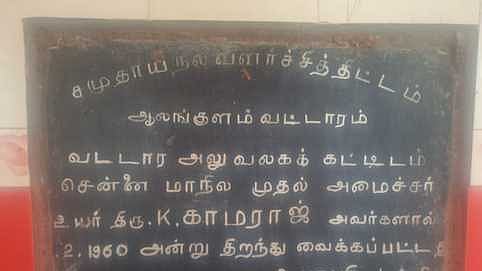 சமுதாயநலவளர்ச்சித்திட்டம்
ஆலங்குளம் வட்டாரம்
வட்டார அலுவலகக் கட்டிடம்
சென்னை மாநில முதல் அமைச்சர்
உயர் திரு. K. காமராஜ் அவர்களால்
2. 1960 அன்று திறந்து வைக்கப்பட்டது